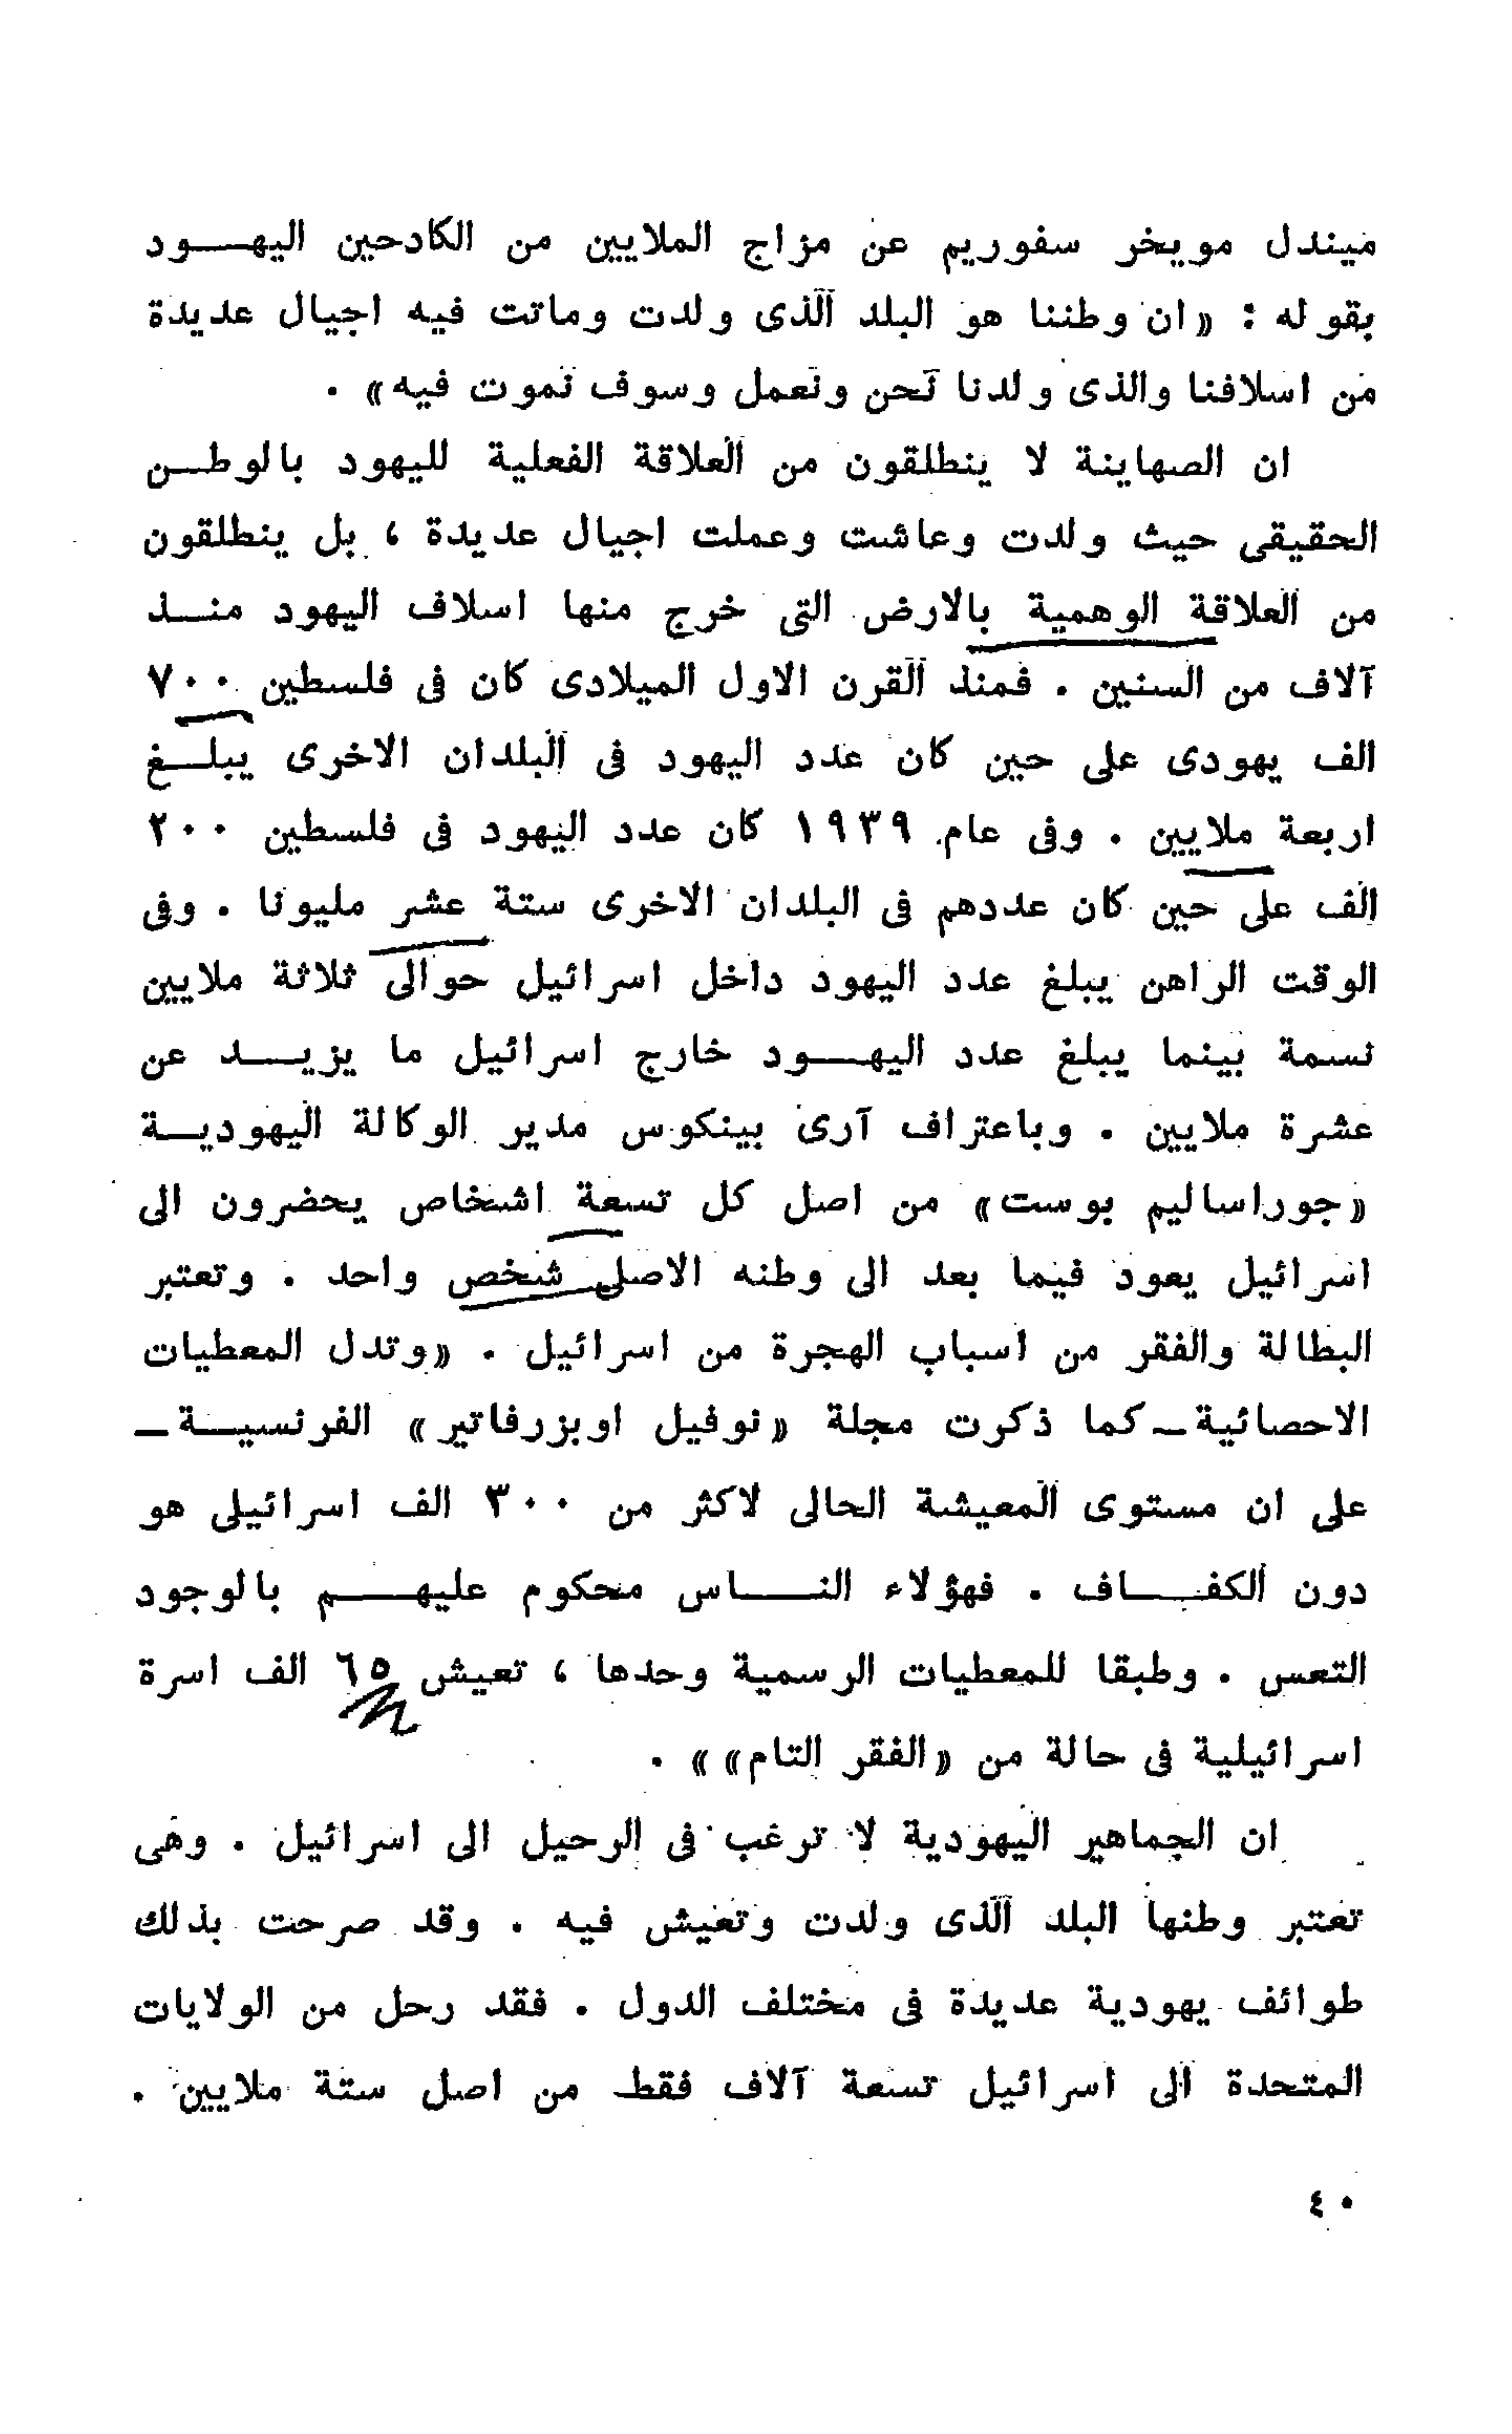 ميندل مويخر سفوريم عن مزاج الملايين من الكادحين اليهـــود
بقوله : «ان وطننا هو البلد الذى ولدت وماتت فيه اجيال عديدة
من اسلافنا والذى ولدنا نحن ونعمل وسوف نموت فيه» .
ان الصهاينة لا ينطلقون من العلاقة الفعلية لليهود بالوطــن
الحقيقى حيث ولدت وعاشت وعملت اجيال عديدة ، بل ينطلقون
من العلاقة الوهمية بالارض التى خرج منها اسلاف اليهود منــذ
آلاف من السنين . فمنذ القرن الاول الميلادى كان فى فلسطين ٧٠٠
الف يهودى على حين كان عدد اليهود فى البلدان الاخرى يبلــغ
اربعة ملايين . وفى عام ١٩٣٩ كان عدد اليهود فى فلسطين ٢٠٠
الف على حين كان عددهم فى البلدان الاخرى ستة عشر مليونا . وفى
الوقت الراهن يبلغ عدد اليهود داخل اسرائيل حوالى ثلاثة ملايين
نسمة بينما يبلغ عدد اليهـــود خارج اسرائيل ما يزيـــد عن
عشرة ملايين . وباعتراف آرى بينكوس مدير الوكالة اليهوديــة
«جوراساليم بوست» من اصل كل تسعة اشخاص يحضرون الى
اسرائيل يعود فيما بعد الى وطنه الاصلى شخص واحد . وتعتبر
البطالة والفقر من اسباب الهجرة من اسرائيل . «وتدل المعطيات
الاحصائية ـ كما ذكرت مجلة «نوفيل اوبزرفاتير» الفرنسيــة ـ
على ان مستوى المعيشة الحالى لاكثر من ٣٠٠ الف اسرائيلى هو
دون الكفـــاف . فهؤلاء النـــاس محكوم عليهـــم بالوجود
التعس . وطبقا للمعطيات الرسمية وحدها ، تعيش ٦٥ الف اسرة
اسرائيلية فى حالة من «الفقر التام»» .
ان الجماهير اليهودية لا ترغب فى الرحيل الى اسرائيل . وهى
تعتبر وطنها البلد الذى ولدت وتعيش فيه . وقد صرحت بذلك
طوائف يهودية عديدة فى مختلف الدول . فقد رحل من الولايات
المتحدة الى اسرائيل تسعة آلاف فقط من اصل ستة ملايين .
٤٠